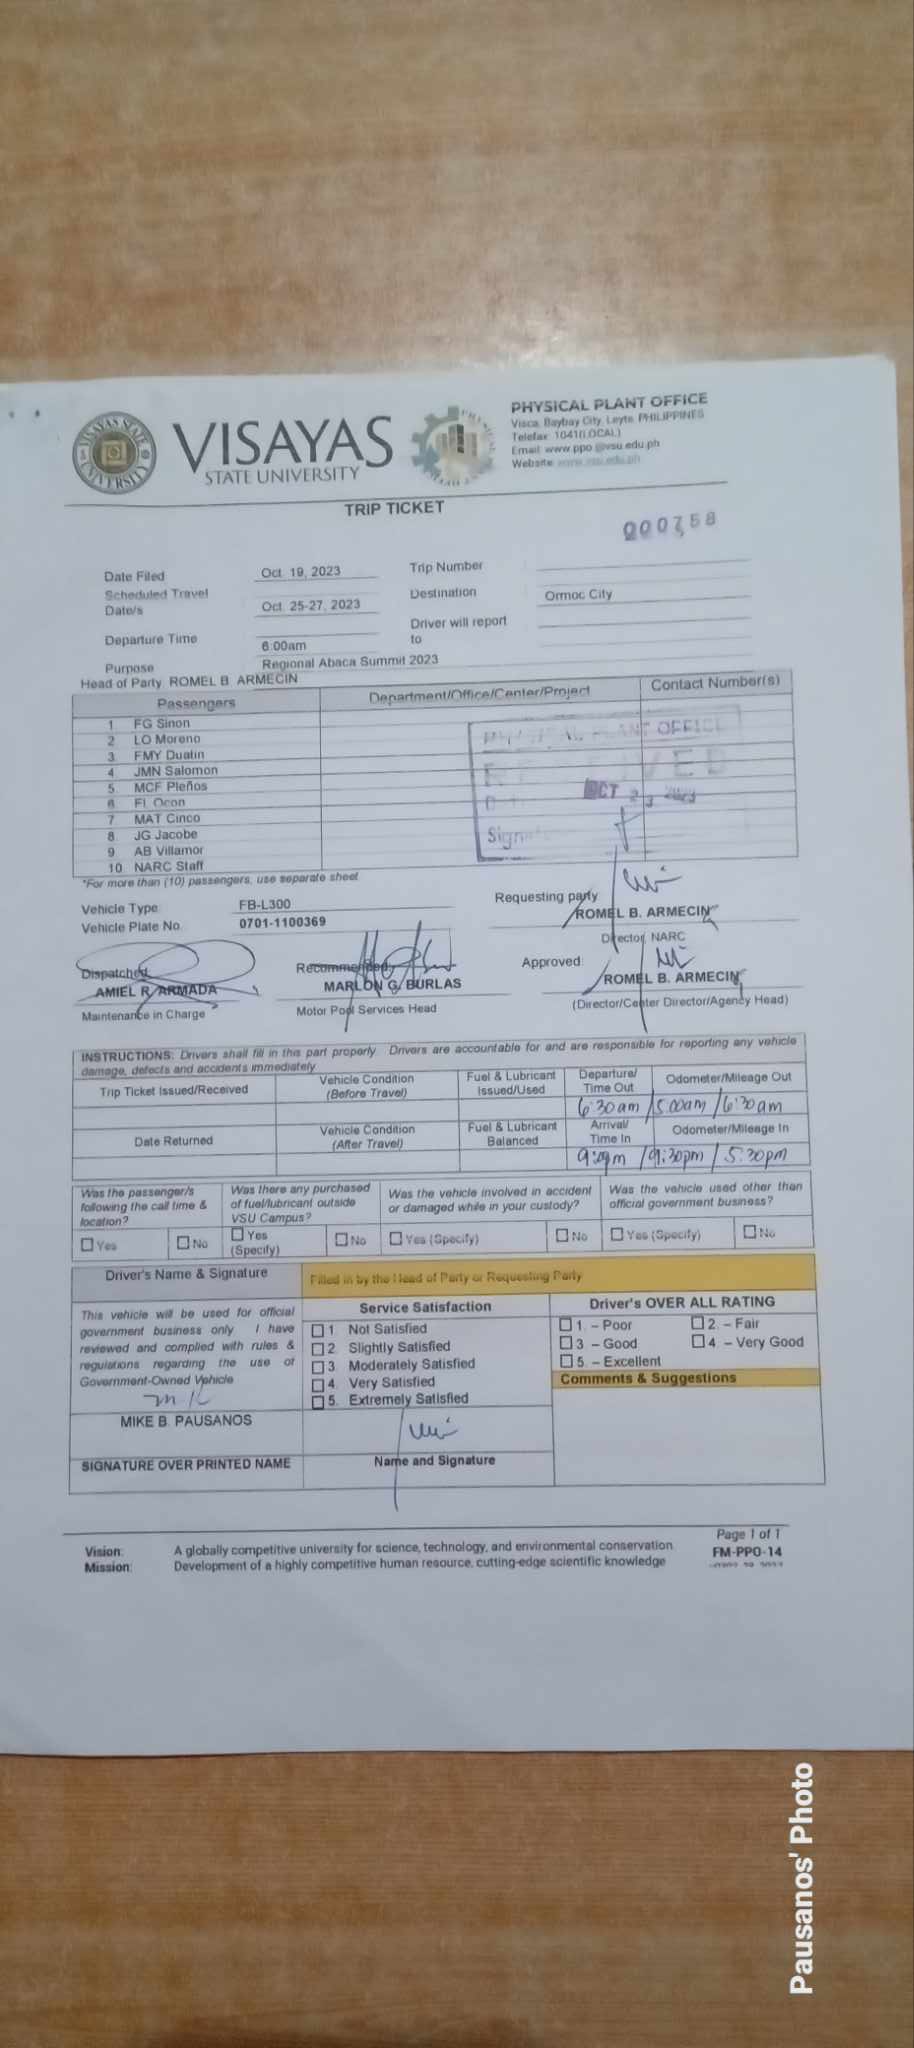 VISAYAS STATE UNIVERSITY
VISAYAS
STATE UNIVERSITY
PHYSICAL PLANT OFFICE
Visca, Baybay City, Leyte, PHILIPPINES
Telefax: 1041(LOCAL)
Email: www.ppo @vsu.edu.ph
Website: www.vsu.edu.ph
TRIP TICKET
000758
Date Filed Oct. 19, 2023 Trip Number
Scheduled Travel Date/s Oct. 25-27, 2023 Destination Ormoc City
Departure Time 6:00am Driver will report to
Purpose Regional Abaca Summit 2023
Head of Party: ROMEL B. ARMECIN
Passengers Department/Office/Center/Project Contact Number(s)
1 FG Sinon
2 LO Moreno
3 FMY Duatin
4 JMN Salomon
5 MCF Pleños
6 FL Ocon
7 MAT Cinco
8 JG Jacobe
9 AB Villamor
10 NARC Staff
PHYSICAL PLANT OFFICE
RECEIVED
OCT 23 2023
*For more than (10) passengers, use separate sheet
Vehicle Type: FB-L300
Vehicle Plate No. 0701-1100369
Requesting party:
ROMEL B. ARMECIN
Director, NARC
Dispatched:
AMIEL R. ARMADA
Maintenance in Charge
Recommended:
MARLON G. BURLAS
Motor Pool Services Head
Approved:
ROMEL B. ARMECIN
(Director/Center Director/Agency Head)
INSTRUCTIONS: Drivers shall fill in this part properly. Drivers are accountable for and are responsible for reporting any vehicle
damage, defects and accidents immediately
Trip Ticket Issued/Received Vehicle Condition (Before Travel) Fuel & Lubricant Issued/Used Departure/ Time Out Odometer/Mileage Out
6:30am /5:00am /6:30am
Date Returned Vehicle Condition (After Travel) Fuel & Lubricant Balanced Arrival/ Time In Odometer/Mileage In
/9:30pm / 5:30pm
Was the passenger/s following the call time & location? Was there any purchased of fuel/lubricant outside VSU Campus? Was the vehicle involved in accident or damaged while in your custody? Was the vehicle used other than official government business?
Yes No Yes (Specify) No Yes (Specify) No Yes (Specify) No
Driver's Name & Signature Filled in by the Head of Party or Requesting Party
This vehicle will be used for official
government business only. I have
reviewed and complied with rules &
regulations regarding the use of
Government-Owned Vehicle
MIKE B. PAUSANOS
SIGNATURE OVER PRINTED NAME
Service Satisfaction
1. Not Satisfied
2. Slightly Satisfied
3. Moderately Satisfied
4. Very Satisfied
5. Extremely Satisfied
Name and Signature
Driver's OVER ALL RATING
1. – Poor 2. – Fair
3 – Good 4 – Very Good
5. – Excellent
Comments & Suggestions
Page 1 of 1
Vision: A globally competitive university for science, technology, and environmental conservation FM-PPO-14
Mission: Development of a highly competitive human resource, cutting-edge scientific knowledge
Pausanos' Photo